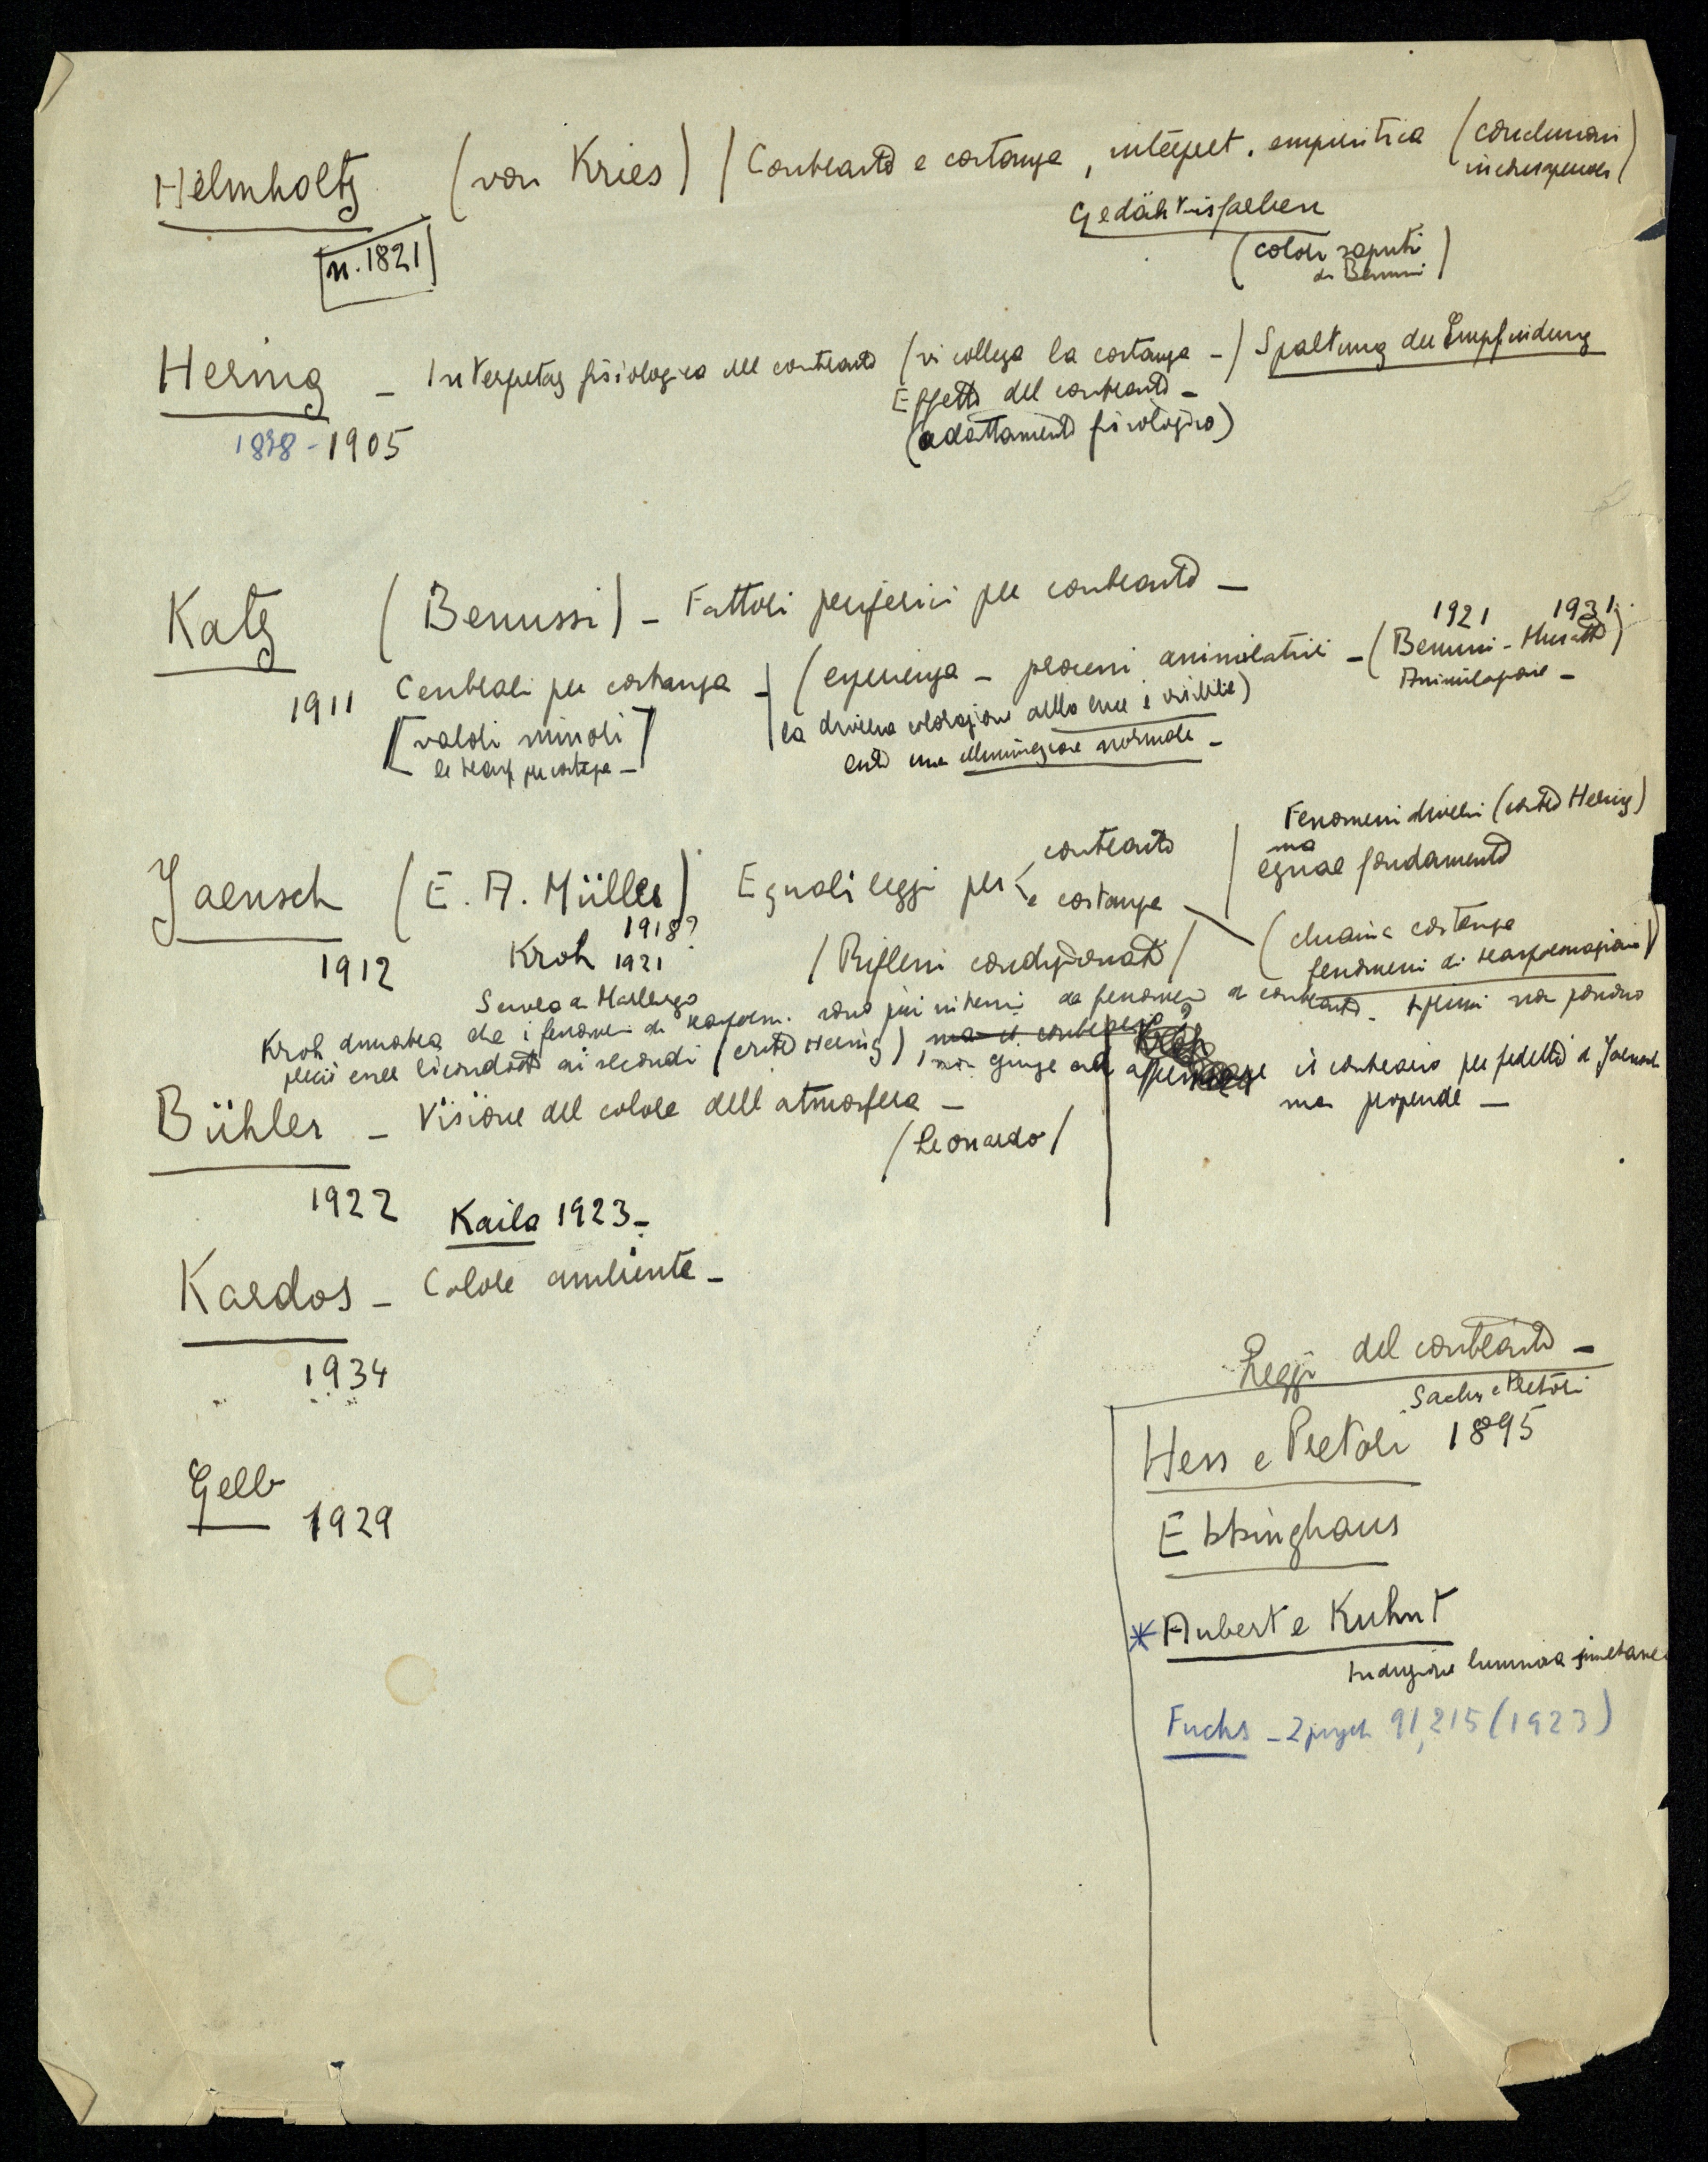 Helmholtz (von Kries) / Contrasto e costanza, interpret. empiristica (conclusioni
inconsapevoli)
[n. 1821]
Gedächtnisfarben
(colori saputi
di Benussi)
Hering - Interpretaz fisiologica del contrasto (vi collega la costanza -) Spaltung der Empfindung
1878-1905
Effetto del contrasto -
(adattamento fisiologico)
Katz (Benussi) - Fattori periferici per contrasto -
1911 Centrali per costanza - (esperienza - processi assimilativi - (Benussi - Musatti)
1921 1931
Assimilazione -
[valori minori
le trasf per costanza -]
la diversa colorazione della luce è visibile)
entro una illuminazione normale -
Jaensch (E. A. Müller) Eguali leggi per contrasto
e costanza
1912
1918?
Kroh 1921
Fenomeni diversi (contro Hering)
ma
eguale fondamento
/ Riflessi condizionati /
(chiama costanza
fenomeni di trasformazione)
Scuola di Marburgo
Kroh dimostra che i fenomeni di trasform. sono più intensi da fenomeni di contrasto - non possono
perciò essere ricondotti ai secondi (contro Hering), ma il
non giunge ad il contrario per fedeltà a Jaensch
ma propende -
Bühler - Visione del colore dell atmosfera -
/Leonardo/
1922
Kaila 1923 -
Kardos - Colore ambiente -
1934
Gelb
1929
Leggi del contrasto -
Sachs e Pretori
Hess e Pretori 1895
Ebbinghaus
* Aubert e Kuhnt
Induzione luminosa simultanea
Fuchs - Z psych 91, 215 (1923)